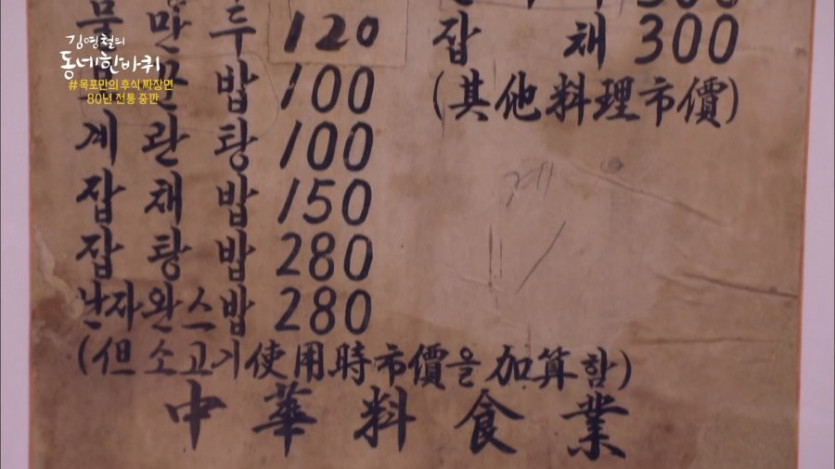 김영철의
동네한바퀴
#목포만의 후식 짜장면
80년 전통 중깐
물만두 120
밥 100
계란탕 100
잡채밥 150
잡탕밥 280
난자완스밥 280
(但 소고기 使用時 市價을 加算함)
잡채 300
(其他料理市價)
中華料食業